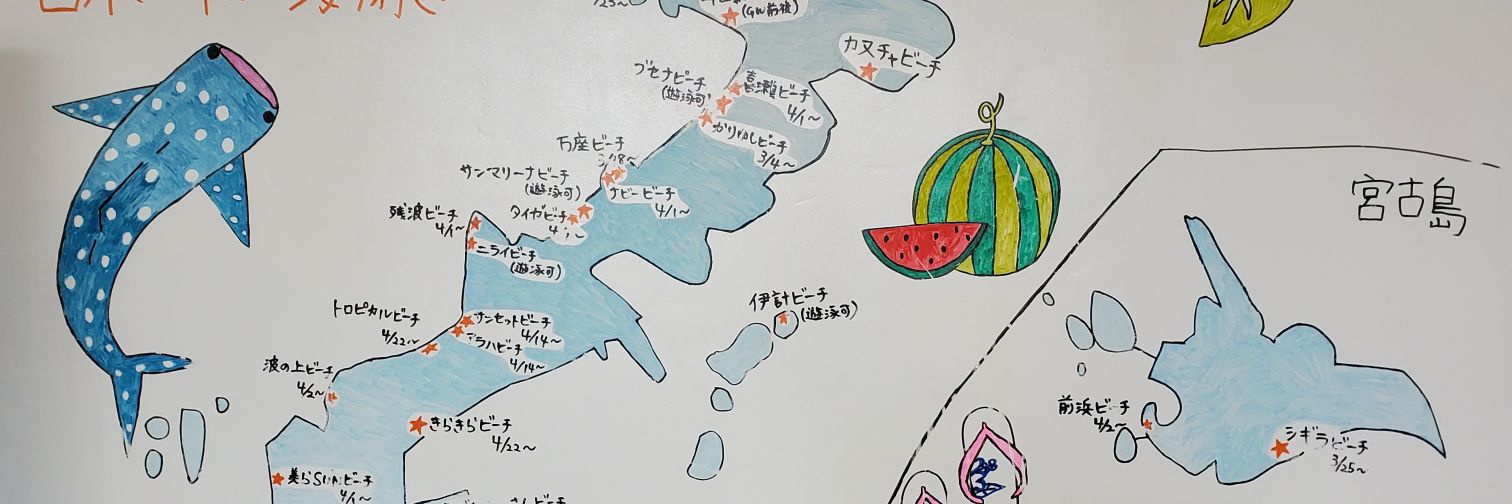 (GW前後)
カヌチャビーチ
ブセナビーチ
(遊泳可)
喜瀬ビーチ
4/1〜
かりゆしビーチ
3/4〜
万座ビーチ
サンマリーナビーチ
(遊泳可)
ナビービーチ
4/1〜
残波ビーチ
4/1〜
タイガビーチ
ニライビーチ
(遊泳可)
宮古島
伊計ビーチ
(遊泳可)
トロピカルビーチ
4/22〜
サンセットビーチ
4/14〜
アラハビーチ
4/14〜
波の上ビーチ
4/2〜
きらきらビーチ
4/22〜
前浜ビーチ
4/2〜
シギラビーチ
3/25〜
美らSUNビーチ
4/1〜